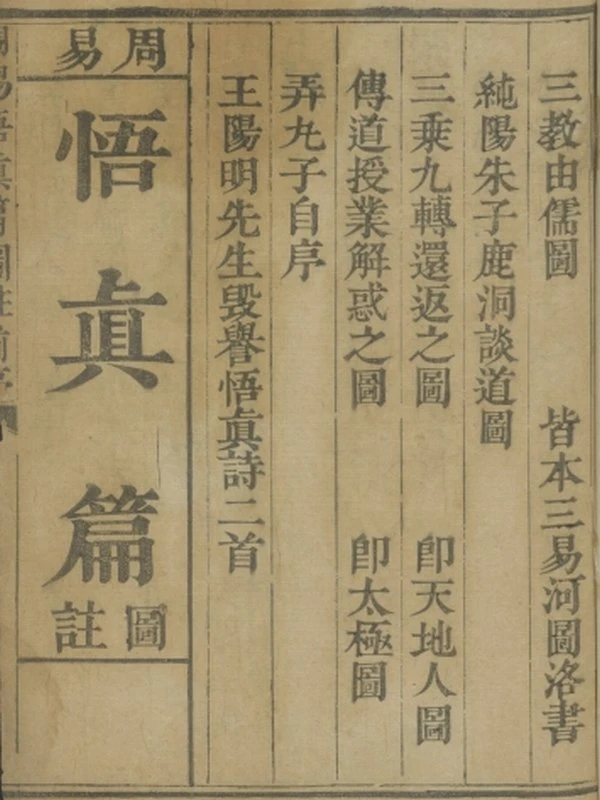 三教由儒圖　皆本三易河圖洛書
純陽朱子鹿洞談道圖
三乘九轉還返之圖　卽天地人圖
傳道授業解惑之圖　卽太極圖
弄丸子自序
王陽明先生毀譽悟眞詩二首
周易
悟眞篇
圖註